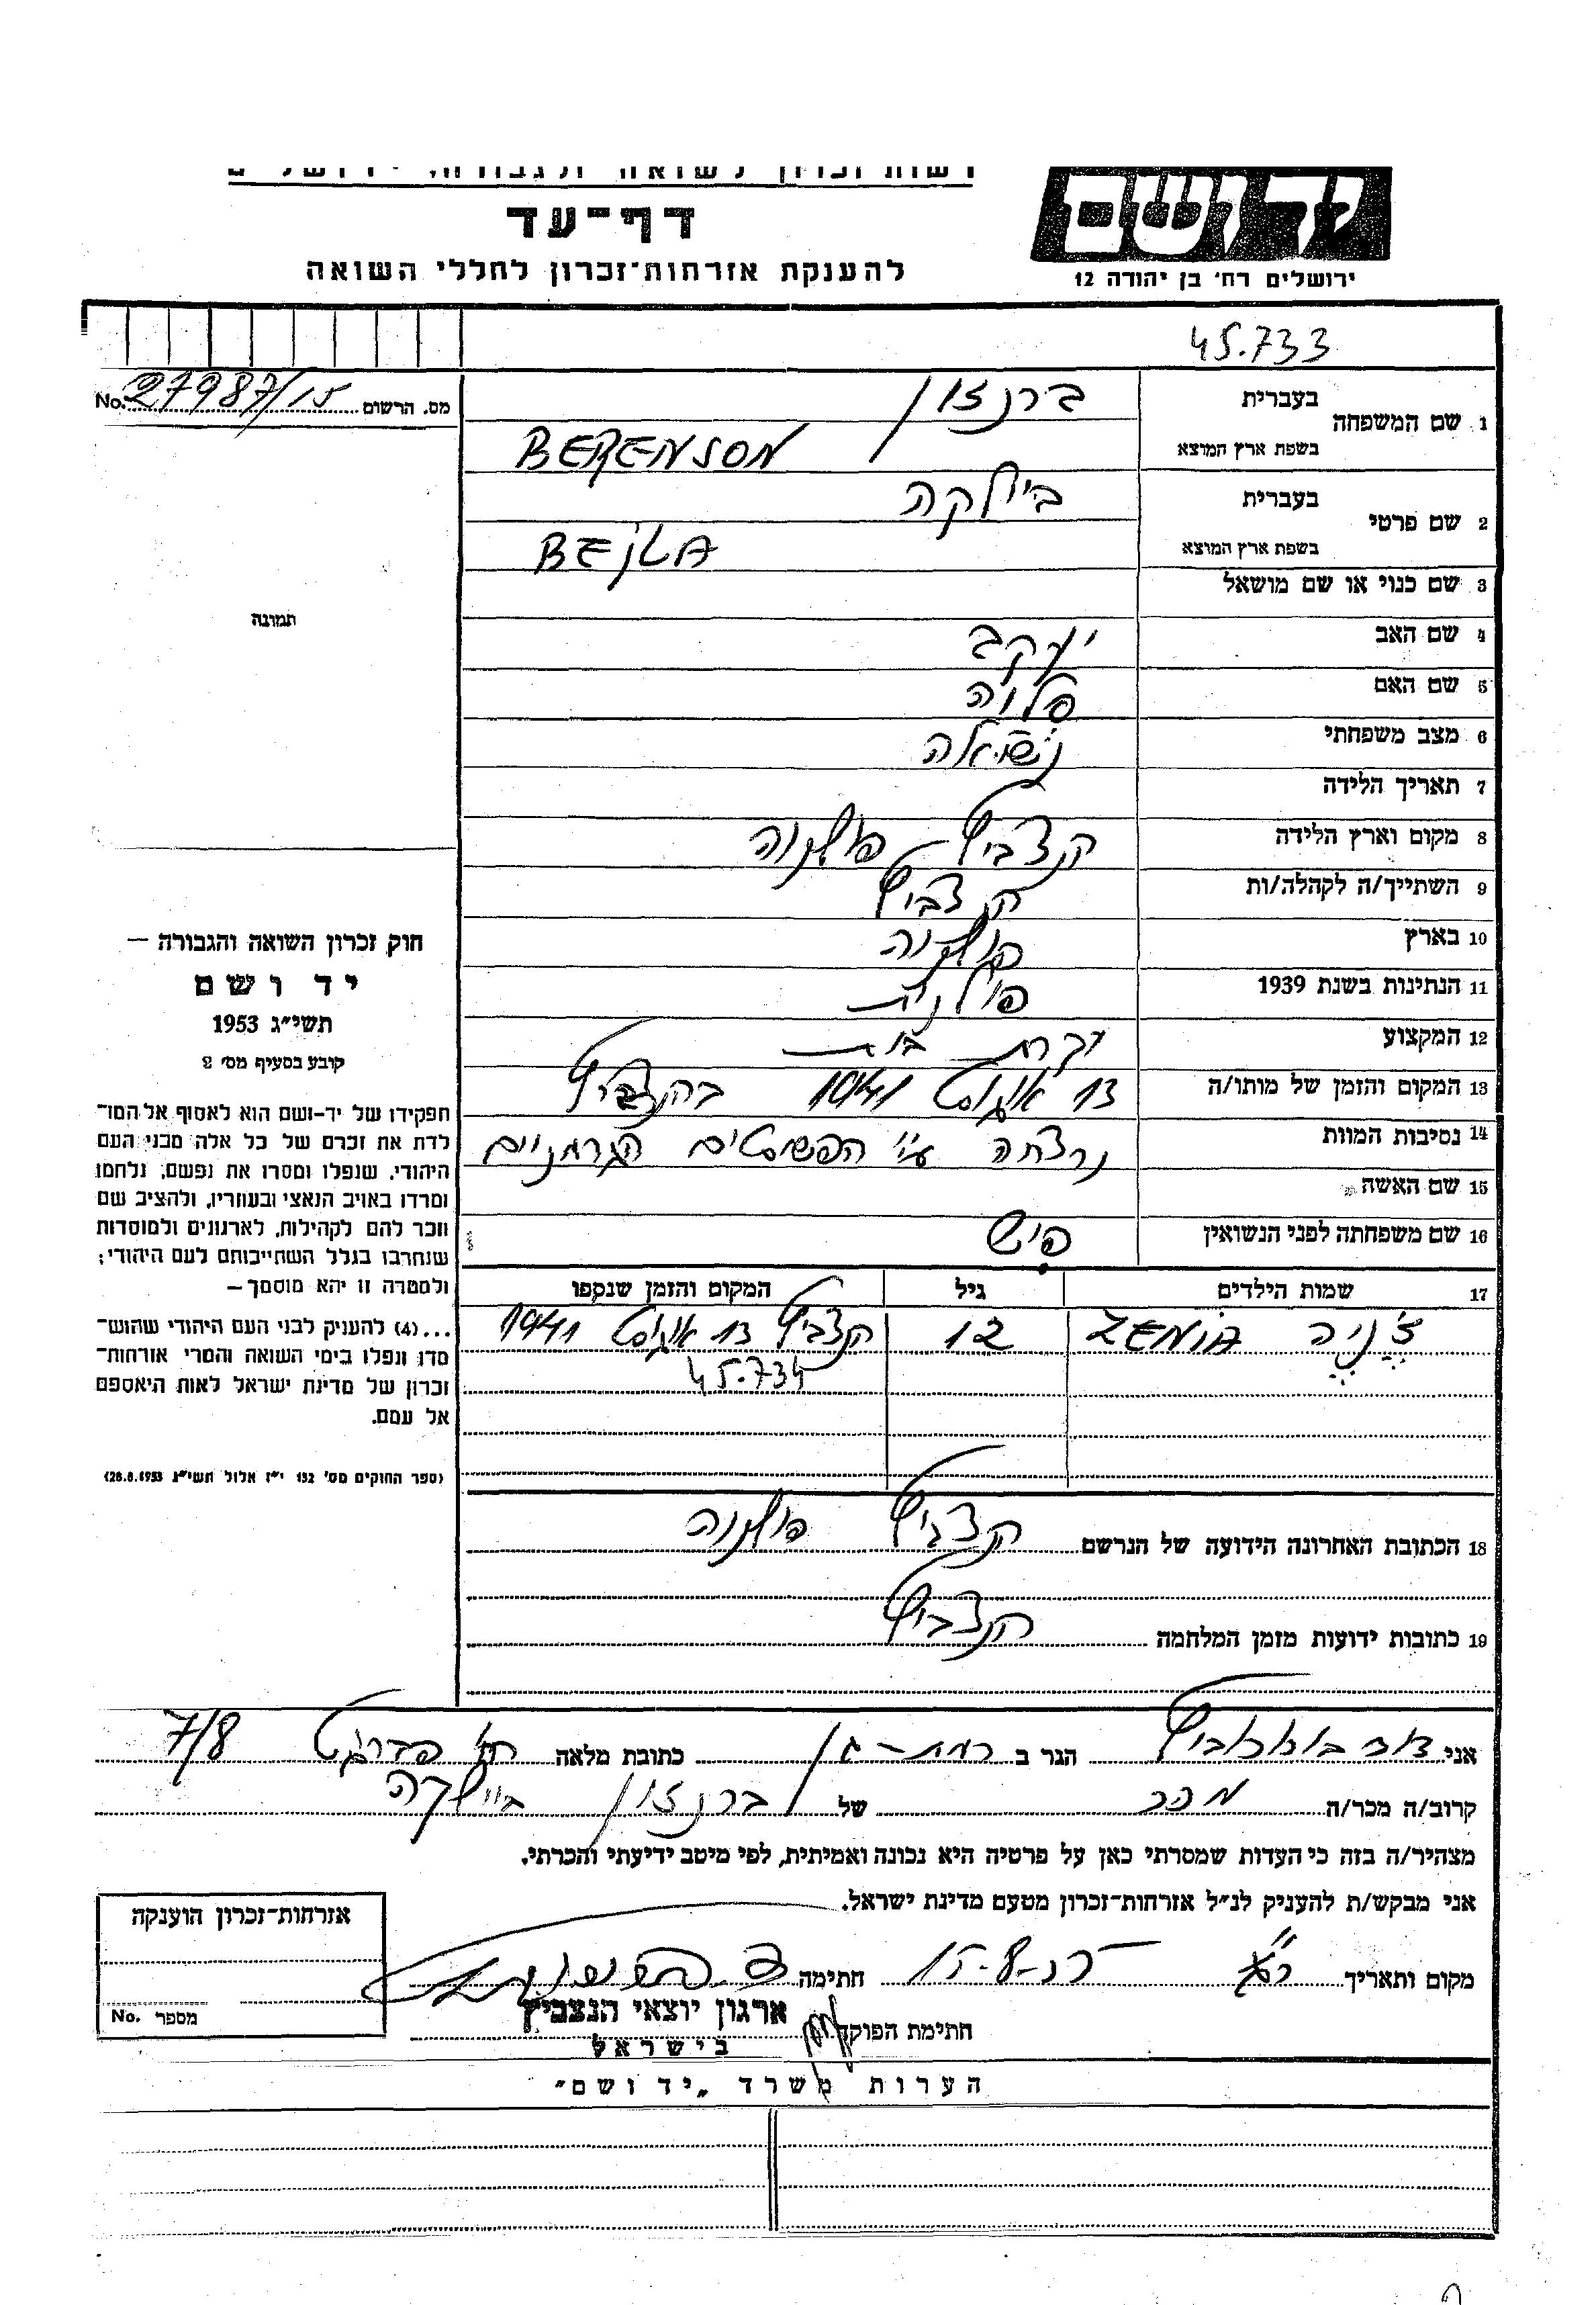 יד ושם
ירושלים רח' בן יהודה 12
רשות זכרון לשואה ולגבורה, ירושלים
דף-עד
להענקת אזרחות-זכרון לחללי השואה
45.733
מס. הרשום No. 27987/15
1 שם המשפחה בעברית ברנזון
בשפת ארץ המוצא BERENSON
2 שם פרטי בעברית ביילקה
בשפת ארץ המוצא BEJLA
3 שם כנוי או שם מושאל
תמונה
4 שם האב יעקב
5 שם האם
6 מצב משפחתי נשואה
7 תאריך הלידה
8 מקום וארץ הלידה הנצביץ פולניה
9 השתייך/ה לקהלה/ות הנצביץ
10 בארץ פולניה
11 הנתינות בשנת 1939 פולנית
12 המקצוע עקרת בית
13 המקום והזמן של מותו/ה 13 אוגוסט 1941 בהנצביץ
14 נסיבות המוות נרצחה ע"י הפשיסטים הגרמנים
15 שם האשה
16 שם משפחתה לפני הנשואין פיש
17 שמות הילדים גיל המקום והזמן שנספו
ז'ניה ZENIA 12 הנצביץ 13 אוגוסט 1941
45.734
18 הכתובת האחרונה הידועה של הנרשם הנצביץ פולניה
19 כתובות ידועות מזמן המלחמה הנצביץ
חוק זכרון השואה והגבורה —
יד ושם
תשי"ג 1953
קובע בסעיף מס' 2
תפקידו של יד-ושם הוא לאסוף אל המו-
לדת את זכרם של כל אלה מבני העם
היהודי, שנפלו ומסרו את נפשם, נלחמו
ומרדו באויב הנאצי ובעוזריו, ולהציב שם
וזכר להם לקהילות, לארגונים ולמוסדות
שנחרבו בגלל השתייכותם לעם היהודי;
ולמטרה זו יהא מוסמך —
...(4) להעניק לבני העם היהודי שהוש-
מדו ונפלו בימי השואה והמרי אזרחות-
זכרון של מדינת ישראל לאות היאספם
אל עמם.
(ספר החוקים מס' 132 י"ז אלול תשי"ג 28.8.1953)
אני הגר ב רמת-גן כתובת מלאה 7/8
קרוב/ה מכר/ה מכר של ברנזון ביילקה
מצהיר/ה בזה כי העדות שמסרתי כאן על פרטיה היא נכונה ואמיתית, לפי מיטב ידיעתי והכרתי.
אני מבקש/ת להעניק לנ"ל אזרחות-זכרון מטעם מדינת ישראל.
מקום ותאריך חתימה
ארגון יוצאי הנצביץ
חתימת הפוקד
בישראל
אזרחות-זכרון הוענקה
מספר No.
הערות משרד "יד ושם"